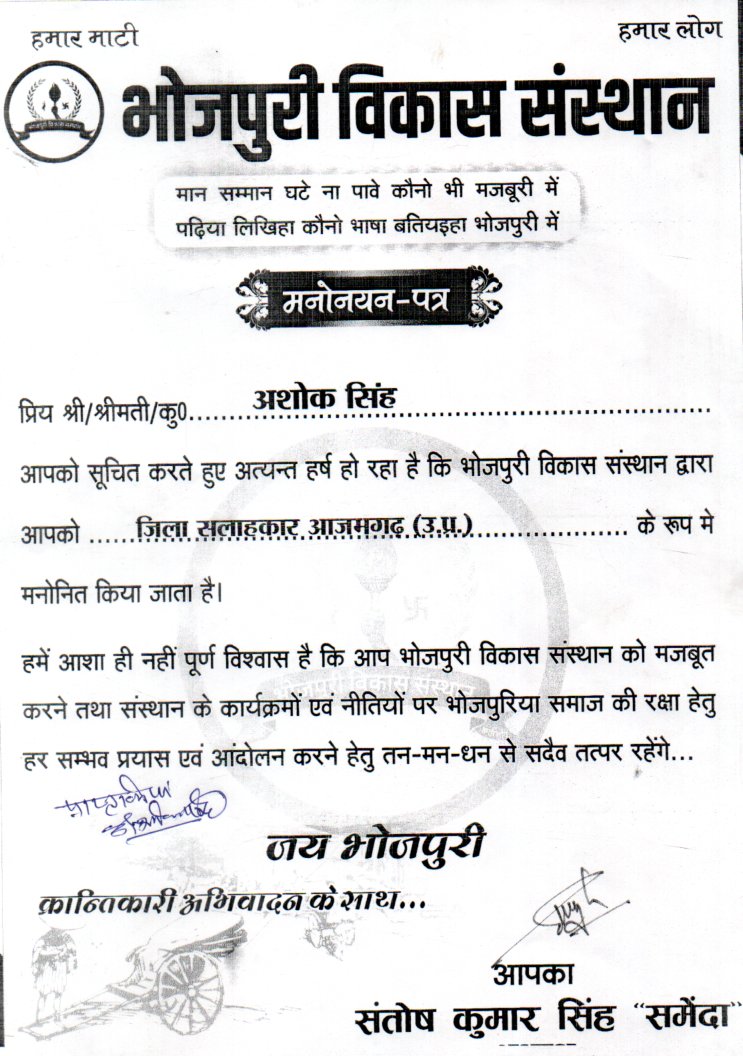 हमार माटी
हमार लोग
भोजपुरी विकास संस्थान
मान सम्मान घटे ना पावे कौनो भी मजबूरी में
पढ़िया लिखिहा कौनो भाषा बतियइहा भोजपुरी में
मनोनयन-पत्र
प्रिय श्री/श्रीमती/कु0.....अशोक सिंह.....
आपको सूचित करते हुए अत्यन्त हर्ष हो रहा है कि भोजपुरी विकास संस्थान द्वारा
आपको .....जिला सलाहकार आजमगढ़ (उ.प्र.)..... के रूप मे
मनोनित किया जाता है।
हमें आशा ही नहीं पूर्ण विश्वास है कि आप भोजपुरी विकास संस्थान को मजबूत
करने तथा संस्थान के कार्यक्रमों एवं नीतियों पर भोजपुरिया समाज की रक्षा हेतु
हर सम्भव प्रयास एवं आंदोलन करने हेतु तन-मन-धन से सदैव तत्पर रहेंगे...
जय भोजपुरी
क्रान्तिकारी अभिवादन के साथ...
आपका
संतोष कुमार सिंह "समेंदा"